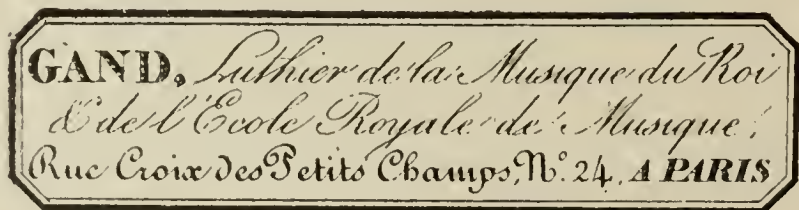 GAND, Luthier de la Musique du Roi
& de l'École Royale de Musique.
Rue Croix des Petits Champs, N.° 24. A PARIS